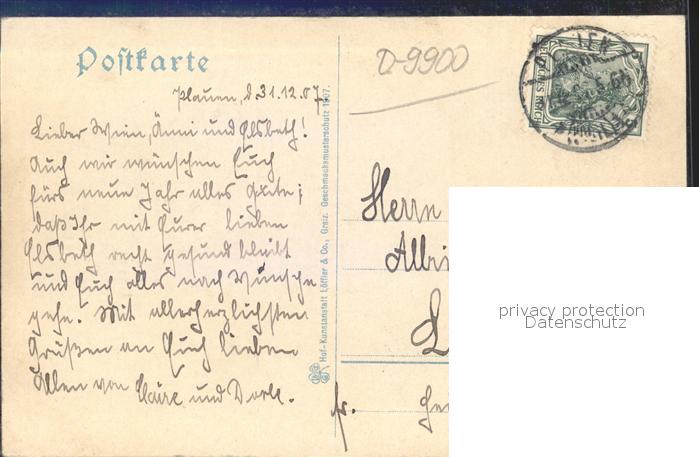 Postkarte
D-9900
Plauen, d. 31.12.07.
Lieber Wien, Änni und Elsbeth!
Auch wir wünschen Euch
fürs neue Jahr alles Gute;
daß Ihr mit Eurer lieben
Elsbeth recht gesund bleibt
und Euch alles nach Wunsche
gehe. Mit allerherzlichsten
Grüßen an Euch lieben
Allen von Claire und Dork.
Hof-Kunstanstalt Löffler & Co., Greiz. Geschmacksmusterschutz 1907.
DEUTSCHES REICH
Herrn
Albri
privacy protection
Datenschutz